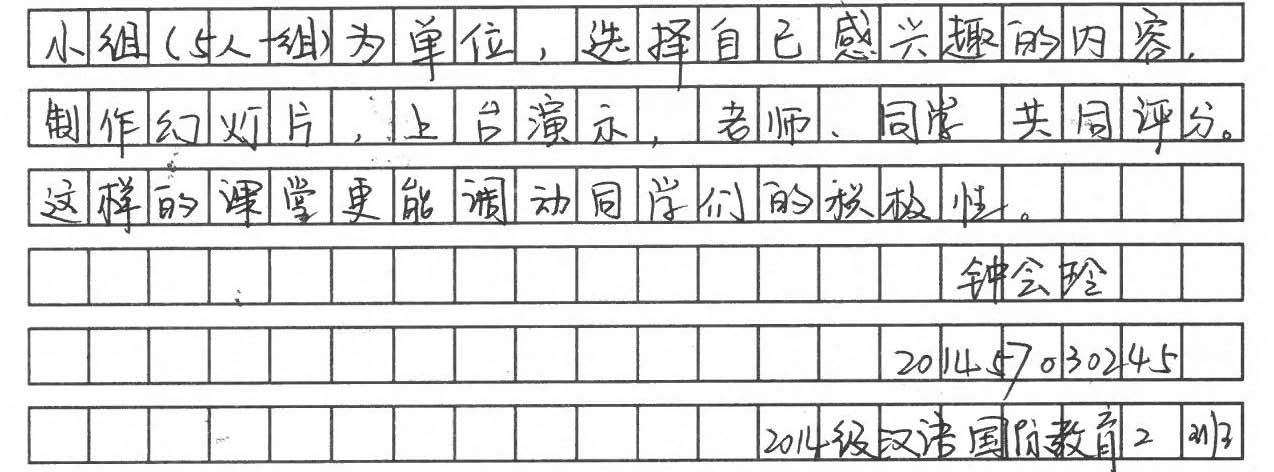 小组(5人一组)为单位，选择自己感兴趣的内容，
制作幻灯片，上台演示，老师、同学共同评分。
这样的课堂更能调动同学们的积极性。
钟会玲
201457030245
2014级汉语国际教育2班